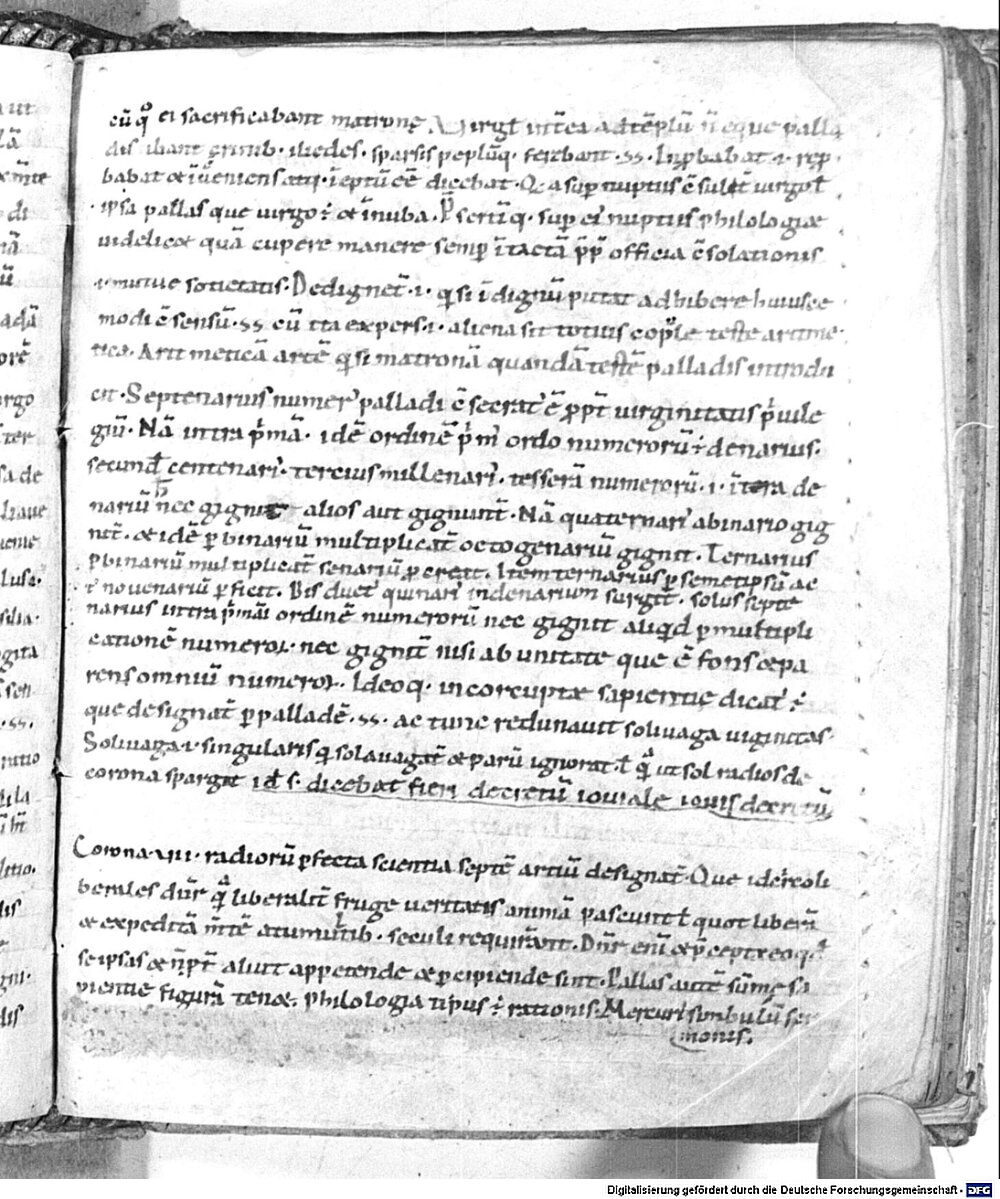 cū qͦ ei sacrificabant matronę Virgł intea ad tēplū n̄ eque palla
dis ibant crinib · iliades · sparsis peplūq · ferebant · ss · Inp̱babat · i · rep̱
babat ōe dicebat · virgo
ipsa pallas que uirgo · ⁊ · & inuba · scriūq · sup ei nuptiis philologiae
uidelicet quā cupere manere semp ītactā pp̄ officia c̄solationis
· i · mutue sotietatis · Dedignet̄ · i · q̇si īdignū putat adhibere huiusce
modi c̄sensū · ss cū ita expers · i · aliena sit totius cople teste arime
tica · Aritmeticā artē q̇si matronā quandā testē palladis introdu
cit · Septenarius numer᾿ palladi c̄secrat᾿ ē p̱pt̄ uirginitatis p̓uile
giū · Nā intra p̓mā · idē ordinē p̓m᾿ ordo numerorū · ⁊ · denarius ·
secund᾿ centenari᾿ · tercius millenari᾿ · tesserā numerorū · i · ītera de
nariū nec gignit alios aut gignunt̄ · Nā quaternari᾿ a binario gig
nit̄ · & idē p̱ binariū multiplicat᾿ octogenariū gignit · Ternarius
p̱ binariū multiplicat᾿ senariū p̱creat · Item ternarius p̱ semetipsū ac
t᾿ nouenariū p̱ficit · Bis duct᾿ quinari᾿ in denarium surgit · solus septe
narius intra p̓mā ordinē numerorū nec gignit aliqd p̱ multipli
cationē numeroꝝ · nec gignit̄ nisi ab unitate que ē fons & pa
rens omniū numeroꝝ · Ideoq · incorruptæ sapientię dicat᾿ ⁊
que designat᾿ p̱ palladē · ss · ac tunc redimauit soliuaga uiginitas ·
Soliuaga · i · singularis q̇ sola uagat᾿ & parū ignorat ł q̇ ut sol radios de
corona spargit id᾿ s · dicebat fieri decretū iouiale iouis decretū
Corona · VII · radiorū p̱fecta scientia septē artiū designat᾿ · Que idcirco li
berales dn̄r q̇ liberalit̄ fruge ueritatis animā pascunt ł quot liberā
& expeditā m̄tē a tumultib · seculi requirant · Dn̄r enī
se ipsas & n̄ pt̄ aliut appetende & p̱cipiende sint · Pallas autē sūme sa
pientię figurā tenet · philologia tipus · ⁊ · rationis · Mercuri᾿ simbulū ser
monis ·